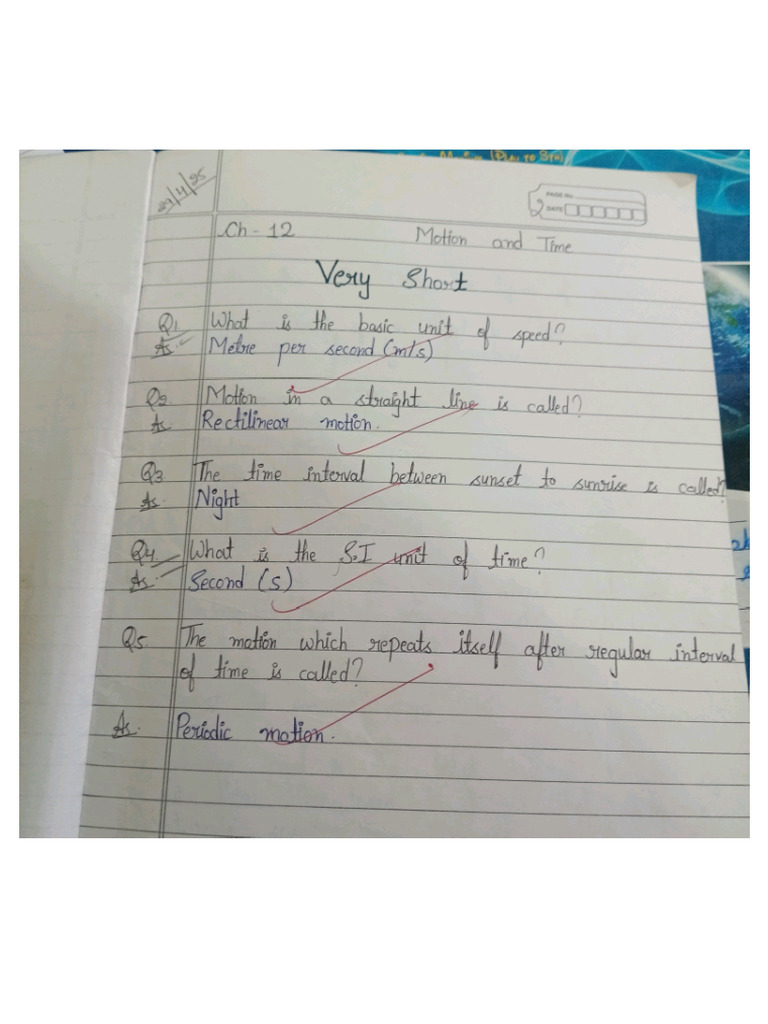 Motion (Play to 8th)
29/4/25
PAGE No.
2
DATE
Ch - 12 Motion and Time
Very Short
Q1 What is the basic unit of speed?
As. Metre per second (m/s)
Q2 Motion in a straight line is called?
As. Rectilinear motion.
Q3 The time interval between sunset to sunrise is called?
As. Night
Q4 What is the S.I unit of time?
As. Second (s)
Q5 The motion which repeats itself after regular interval
of time is called?
As. Periodic motion.